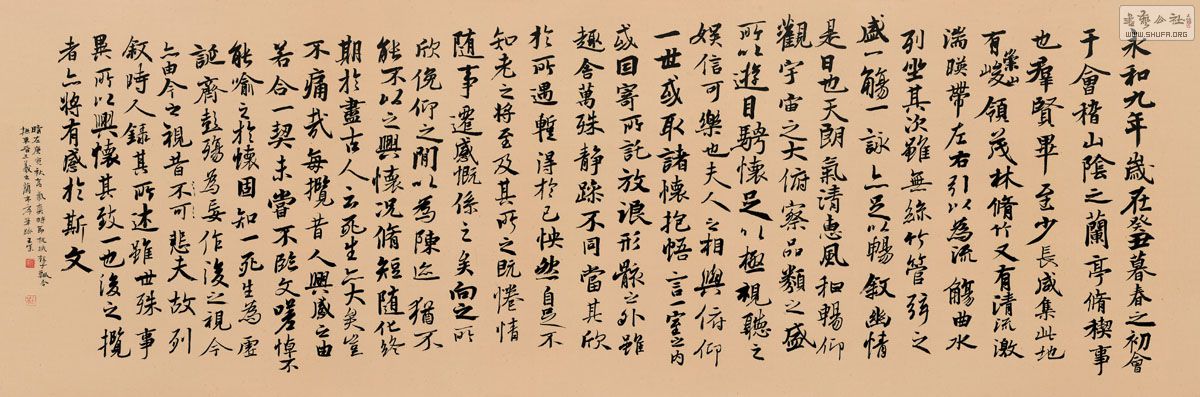 永和九年歲在癸丑暮春之初會
于會稽山陰之蘭亭脩稧事
也羣賢畢至少長咸集此地
有崇山峻領茂林脩竹又有清流激
湍暎帶左右引以為流觴曲水
列坐其次雖無絲竹管弦之
盛一觴一詠亦足以暢敘幽情
是日也天朗氣清惠風和暢仰
觀宇宙之大俯察品類之盛
所以遊目騁懷足以極視聽之
娛信可樂也夫人之相與俯仰
一世或取諸懷抱悟言一室之內
或因寄所託放浪形骸之外雖
趣舍萬殊静躁不同當其欣
於所遇暫得於己怏然自足不
知老之將至及其所之既惓情
随事遷感慨係之矣向之所
欣俛仰之閒以為陳迹猶不
能不以之興懷況脩短随化終
期於盡古人云死生亦大矣豈
不痛哉每攬昔人興感之由
若合一契未嘗不臨文嗟悼不
能喻之於懷固知一死生為虛
誕齊彭殤為妄作後之視今
亦由今之視昔悲夫故列
敘時人錄其所述雖世殊事
異所以興懷其致一也後之攬
者亦將有感於斯文
书艺公社
WWW.SHUFA.ORG